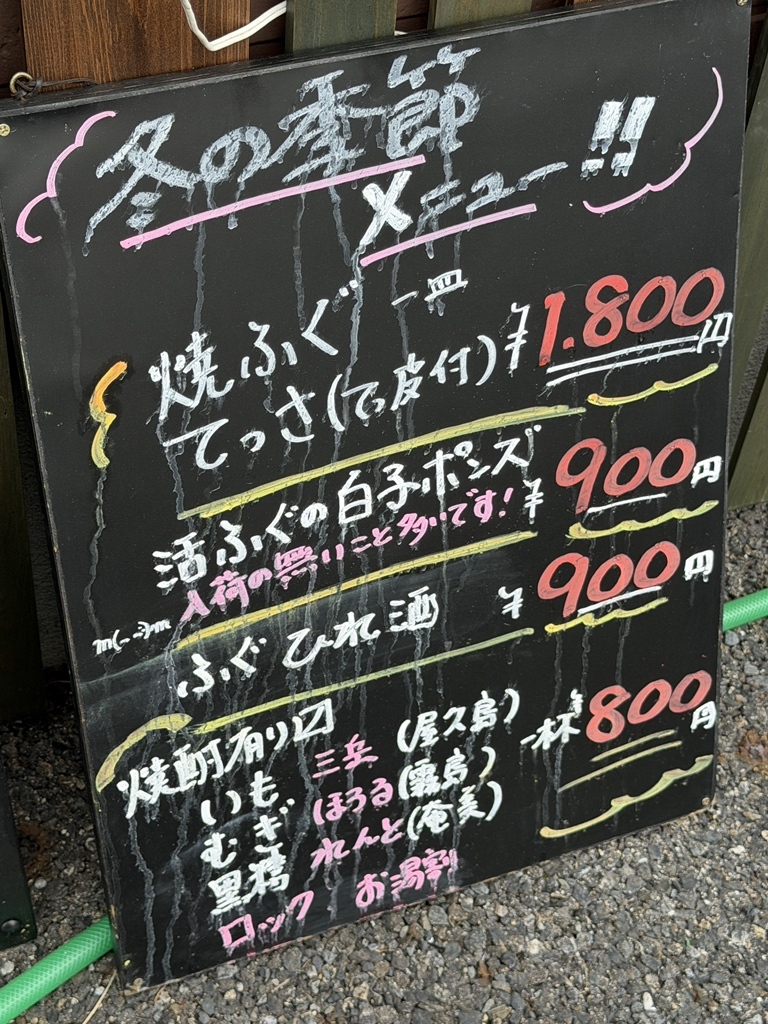 冬の季節
メニュー!!
焼ふぐ 一皿 ¥1.800円
てっさ(てっ皮付)
活ふぐの白子ポンズ ¥900円
入荷の無いこと多いです!
m(..)m
ふぐひれ酒 ¥900円
焼酎有り〼 一杯 ¥800円
いも 三岳 (屋久島)
むぎ ほろる (霧島)
黒糖 れんと (奄美)
ロック お湯割